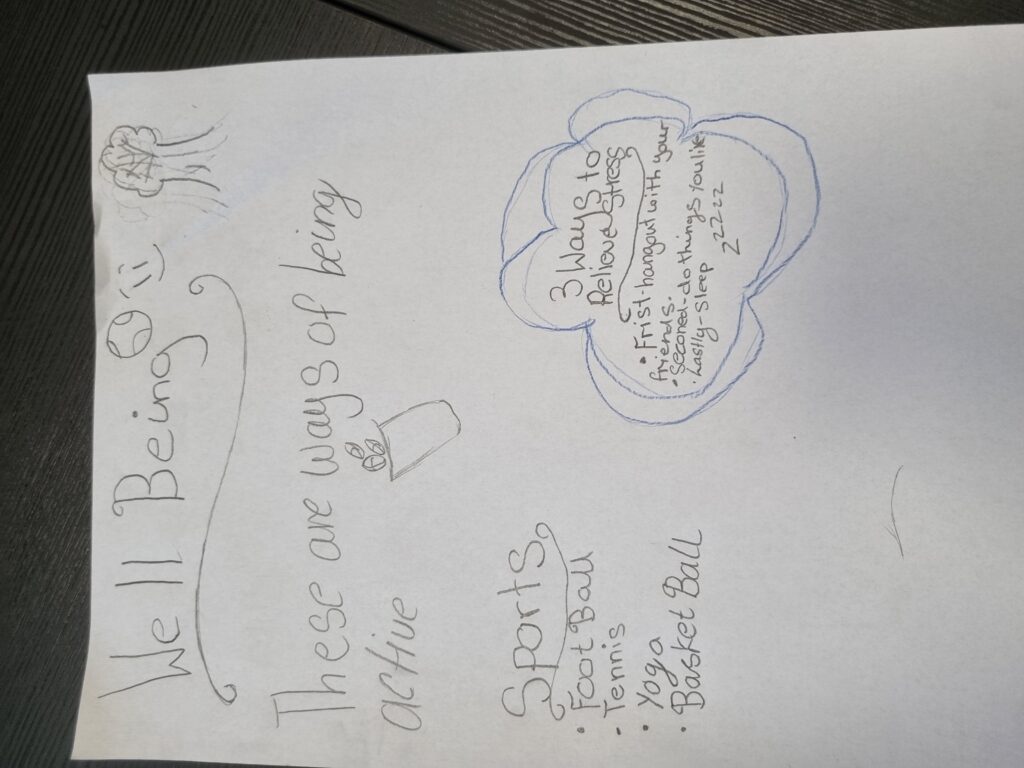 Well Being
These are ways of being
active
Sports
• Foot Ball
• Tennis
• Yoga
• Basket Ball
3 Ways to
Relieve Stress
• Frist hangout with your
friends.
• Seconed-do things you like
• Lastly-Sleep
zzzzz